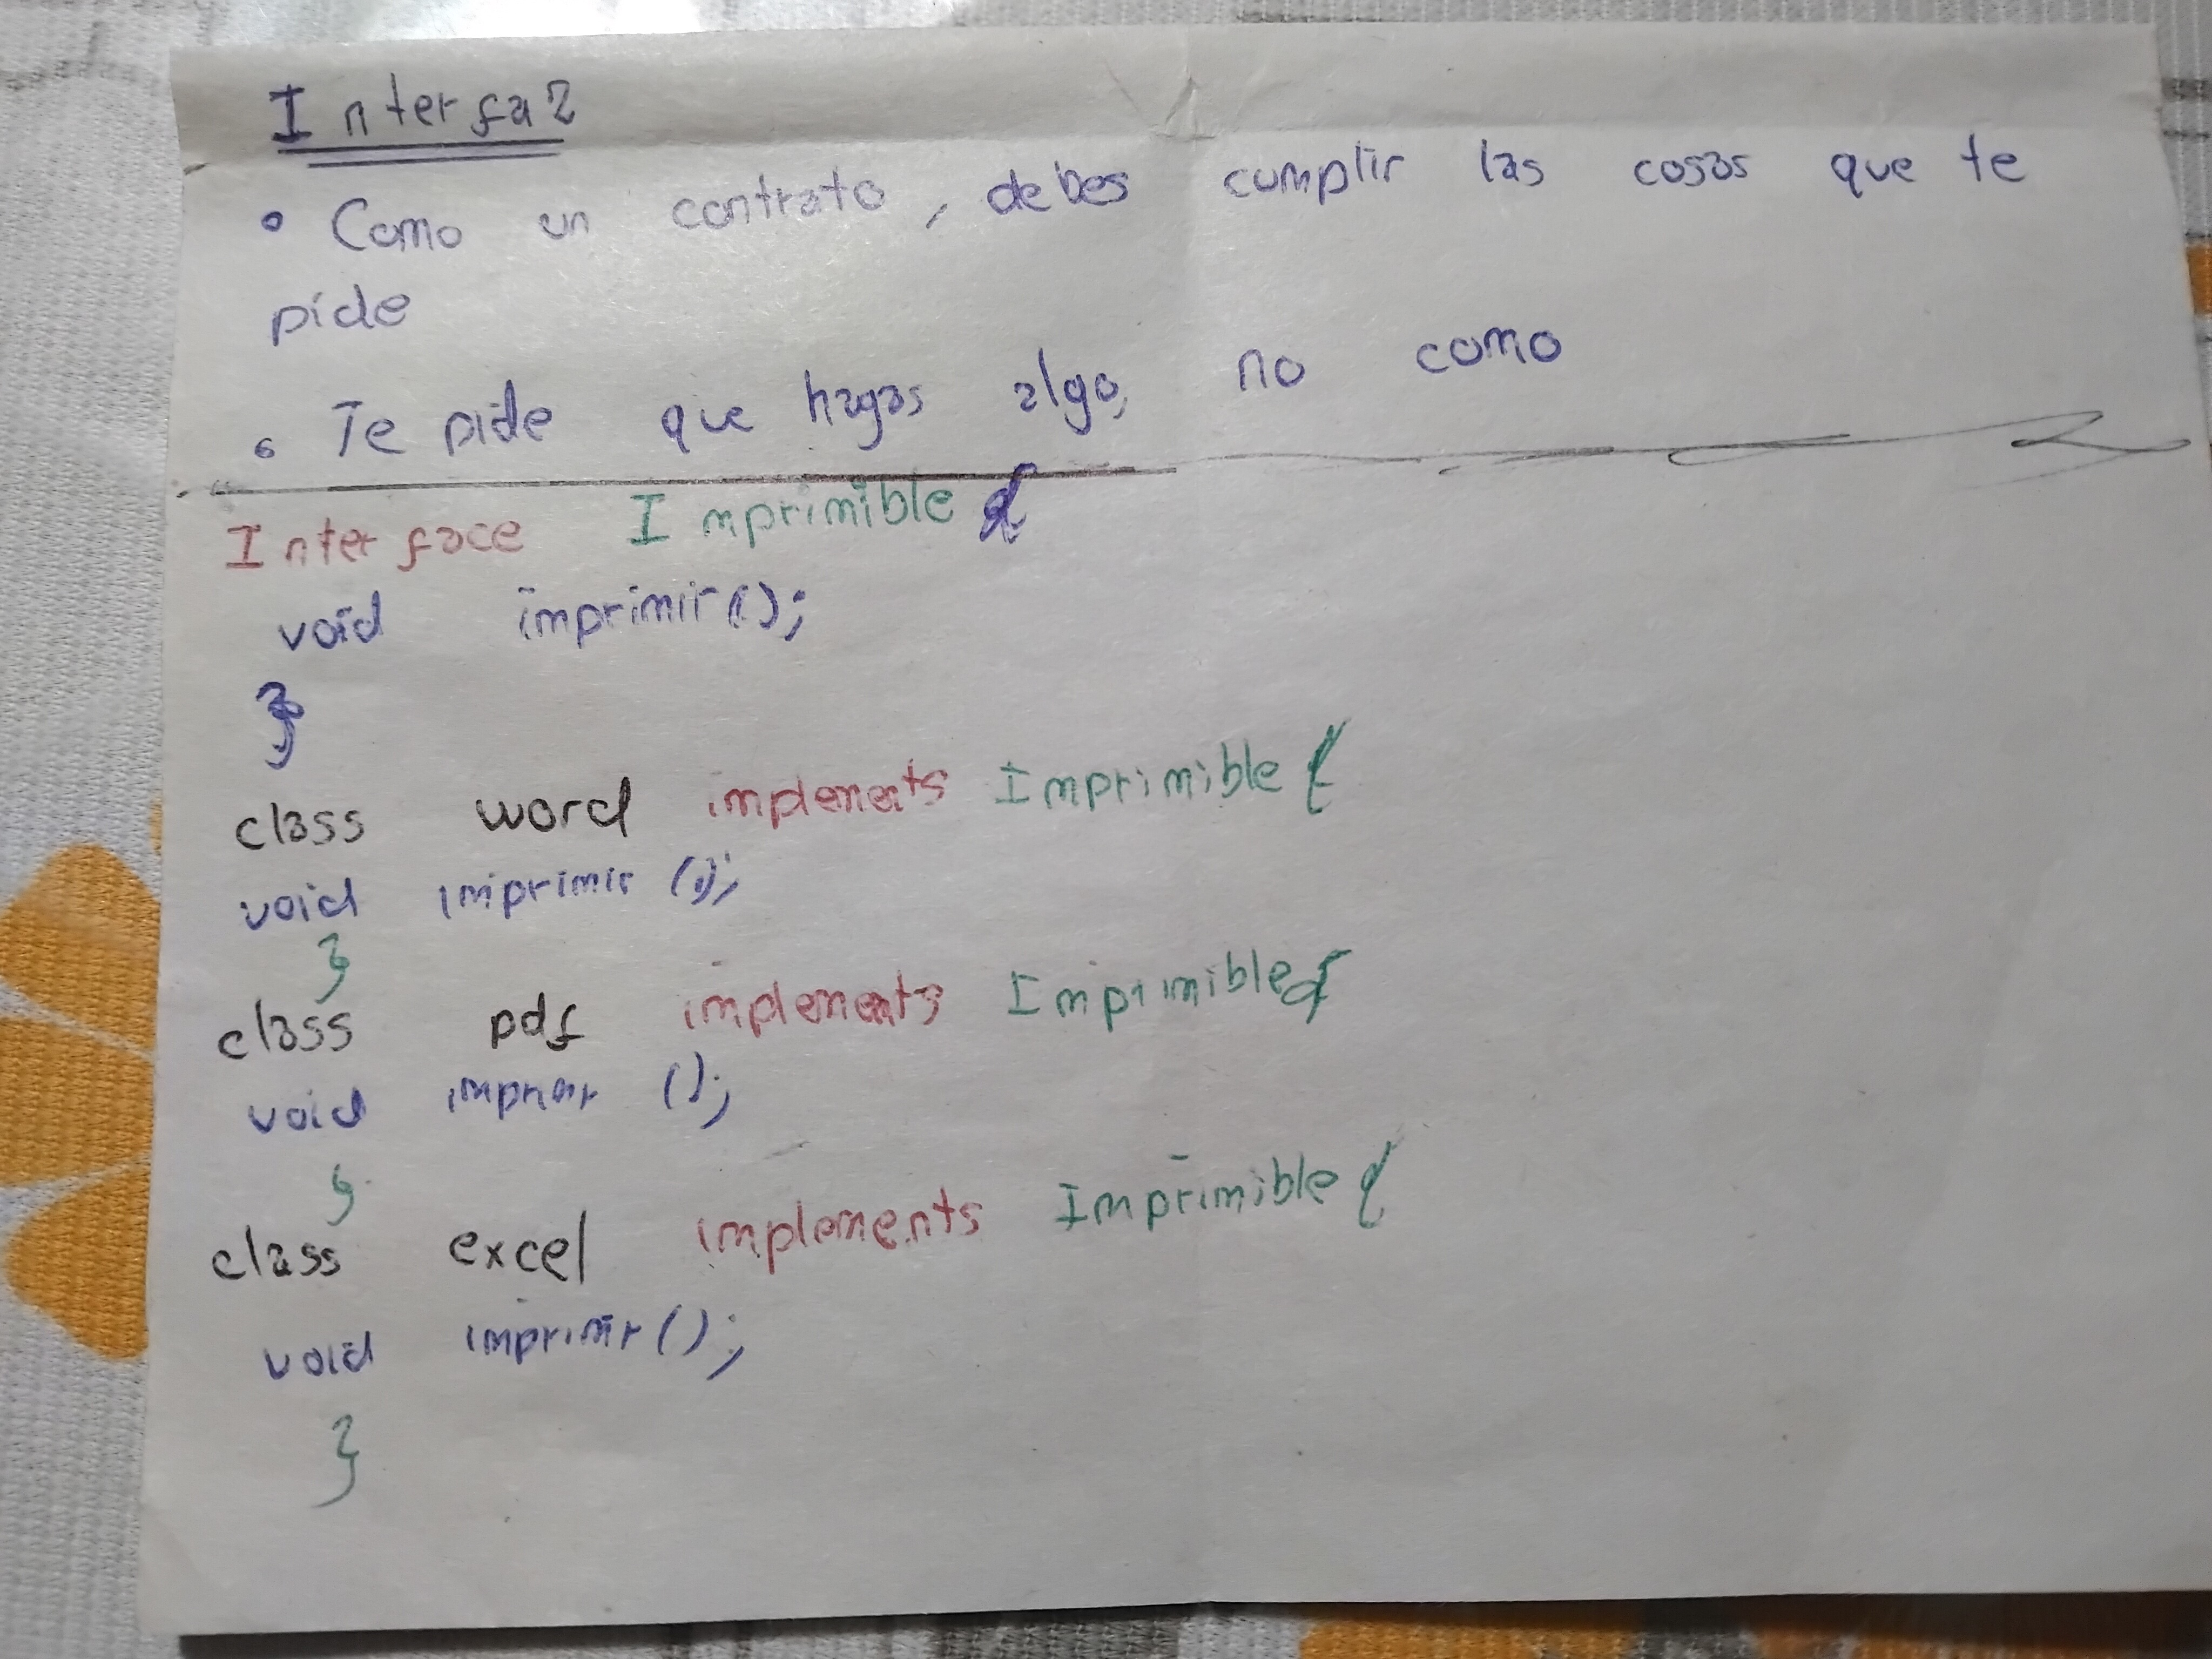 Interfaz
• Como un contrato, debes cumplir las cosas que te
pide
• Te pide que hagas algo, no como
Interface Imprimible {
void imprimir();
}
class word implements Imprimible {
void imprimir();
}
class pdf implements Imprimible {
void imprimir();
}
class excel implements Imprimible {
void imprimir();
}